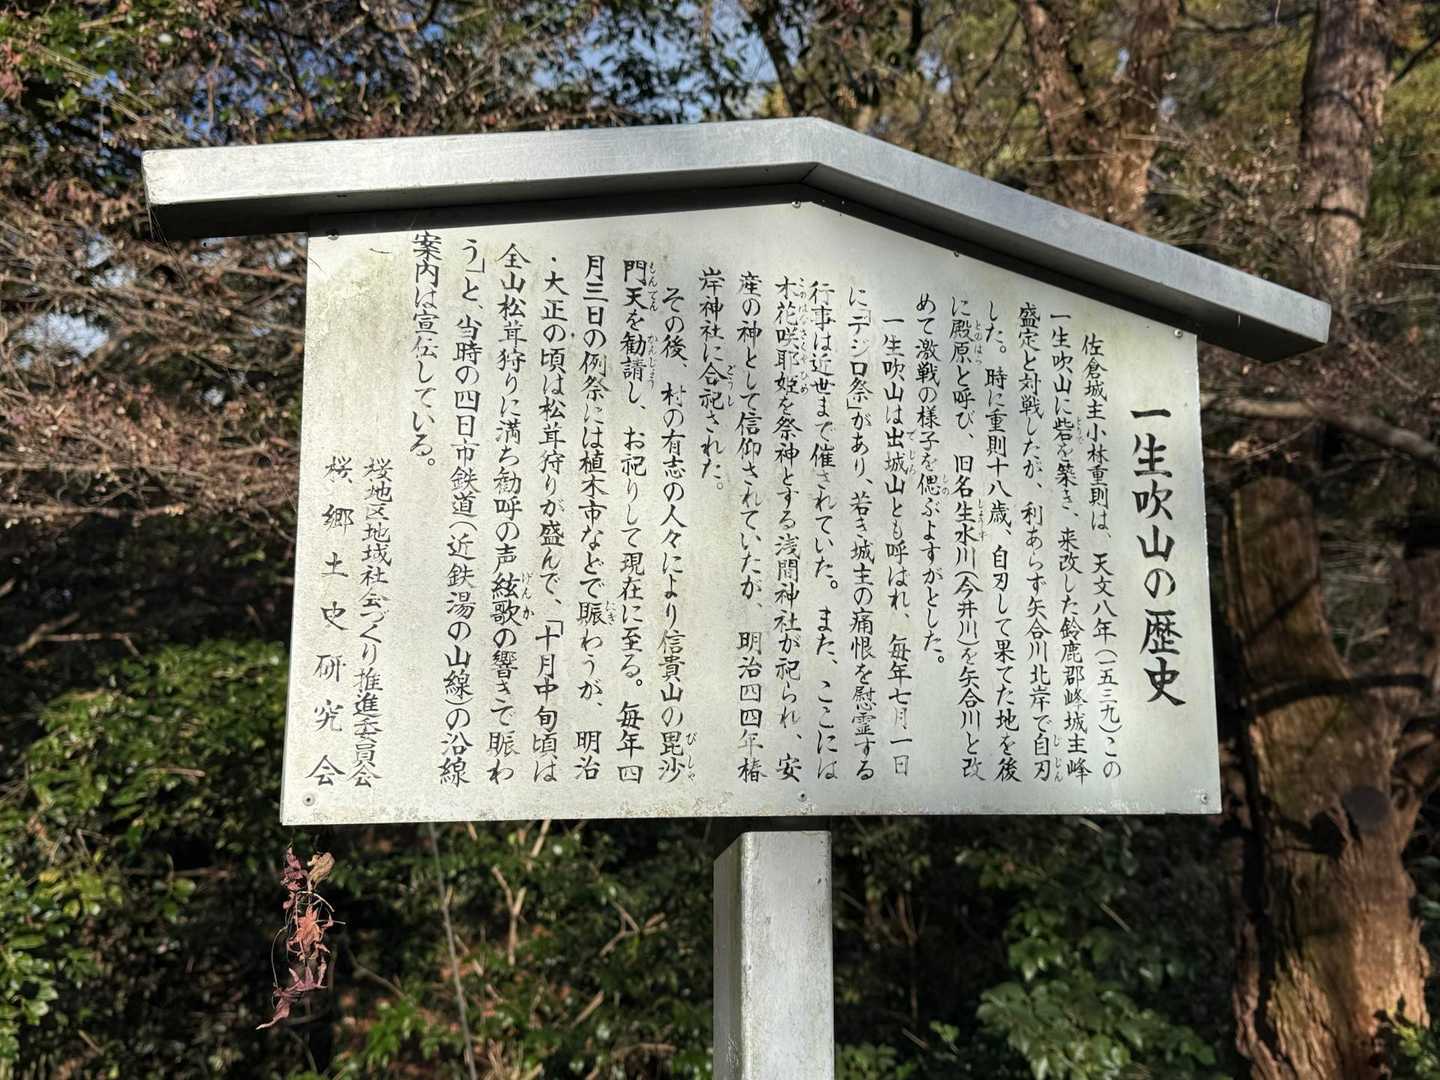 一生吹山の歴史
佐倉城主小林重則は、天文八年(一五三九)この
一生吹山に砦を築き、来攻した鈴鹿郡峰城主峰
とりで
盛定と対戦したが、利あらず矢合川北岸で自刃
じじん
した。時に重則十八歳、自刃して果てた地を後
に殿原と呼び、旧名生水川(今井川)を矢合川と改
とのはつ しょうず
めて激戦の様子を偲ぶよすがとした。
しの
一生吹山は出城山とも呼ばれ、毎年七月一日
でじろ
に「デジロ祭」があり、若き城主の痛恨を慰霊する
行事は近世まで催されていた。また、ここには
木花咲耶姫を祭神とする浅間神社が祀られ、安
このはなさくやひめ
産の神として信仰されていたが、明治四四年椿
岸神社に合祀された。
ごうし
その後、村の有志の人々により信貴山の毘沙
びしゃ
門天を勧請し、お祀りして現在に至る。毎年四
もんてん かんじょう
月三日の例祭には植木市などで賑わうが、明治
にぎ
・大正の頃は松茸狩りが盛んで、「十月中旬頃は
全山松茸狩りに満ち勧呼の声絃歌の響きで賑わ
げんか
う」と、当時の四日市鉄道(近鉄湯の山線)の沿線
案内は宣伝している。
桜地区地域社会づくり推進委員会
桜郷土史研究会